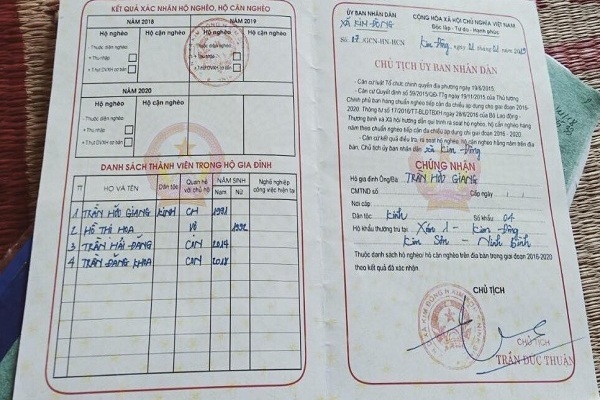 KẾT QUẢ XÁC NHẬN HỘ NGHÈO, HỘ CẬN NGHÈO
NĂM 2018
NĂM 2019
Hộ nghèo
Hộ cận nghèo
Hộ nghèo
Hộ cận nghèo
- Thuộc diện nghèo
+ Thu nhập
+ Thư DVXH cơ bản
NĂM 2020
Hộ nghèo
Hộ cận nghèo
- Thuộc diện nghèo
+ Thu nhập
DANH SÁCH THÀNH VIÊN TRONG HỘ GIA ĐÌNH
TT
HỌ VÀ TÊN
Dân tộc
Quan hệ với chủ hộ
NĂM SINH
Nam
Nữ
Nghề nghiệp công việc hiện tại
1 TRẦN HỮU GIANG KINH CH 1981
2 HỒ THỊ HOA VỢ 1992
3 TRẦN HẢI ĐĂNG CON 2014
4 TRẦN ĐĂNG KHOA CON
ỦY BAN NHÂN DÂN
XÃ KIM ĐÔNG
Số: 17 /GCN-HN-HCN
CỘNG HÒA XÃ HỘI CHỦ NGHĨA VIỆT NAM
Độc lập - Tự do - Hạnh phúc
Kim Đông, ngày
CHỦ TỊCH ỦY BAN NHÂN DÂN
- Căn cứ luật Tổ chức chính quyền địa phương ngày 19/6/2015;
- Căn cứ Quyết định số 59/2015/QĐ-TTg ngày 19/11/2015 của Thủ tướng
Chính phủ ban hành chuẩn nghèo tiếp cận đa chiều áp dụng cho giai đoạn 2016-
2020. Thông tư số 17/2016/TT-BLĐTBXH ngày 28/6/2016 của Bộ Lao động -
Thương binh và Xã hội hướng dẫn qui trình rà soát hộ nghèo, hộ cận nghèo hàng
năm theo chuẩn nghèo tiếp cận đa chiều áp dụng cho giai đoạn 2016 - 2020.
- Căn cứ kết quả điều tra, rà soát hộ nghèo, hộ cận nghèo hằng năm trên địa
bàn, Chủ tịch ủy ban nhân dân xã Kim Đông
CHỨNG NHẬN
Hộ gia đình Ông/Bà: TRẦN HỮU GIANG
CMTND số: Cấp ngày
Nơi cấp
Dân tộc: Kinh Số khẩu: 04
Hộ khẩu thường trú tại: Xóm 1 - Kim Đông
Kim Sơn - Ninh Bình
Thuộc danh sách hộ nghèo/ hộ cận nghèo trên địa bàn trong giai đoạn 2016-2020
theo kết quả đã xác nhận.
CHỦ TỊCH
CHỦ TỊCH
TRẦN ĐỨC THUẬN